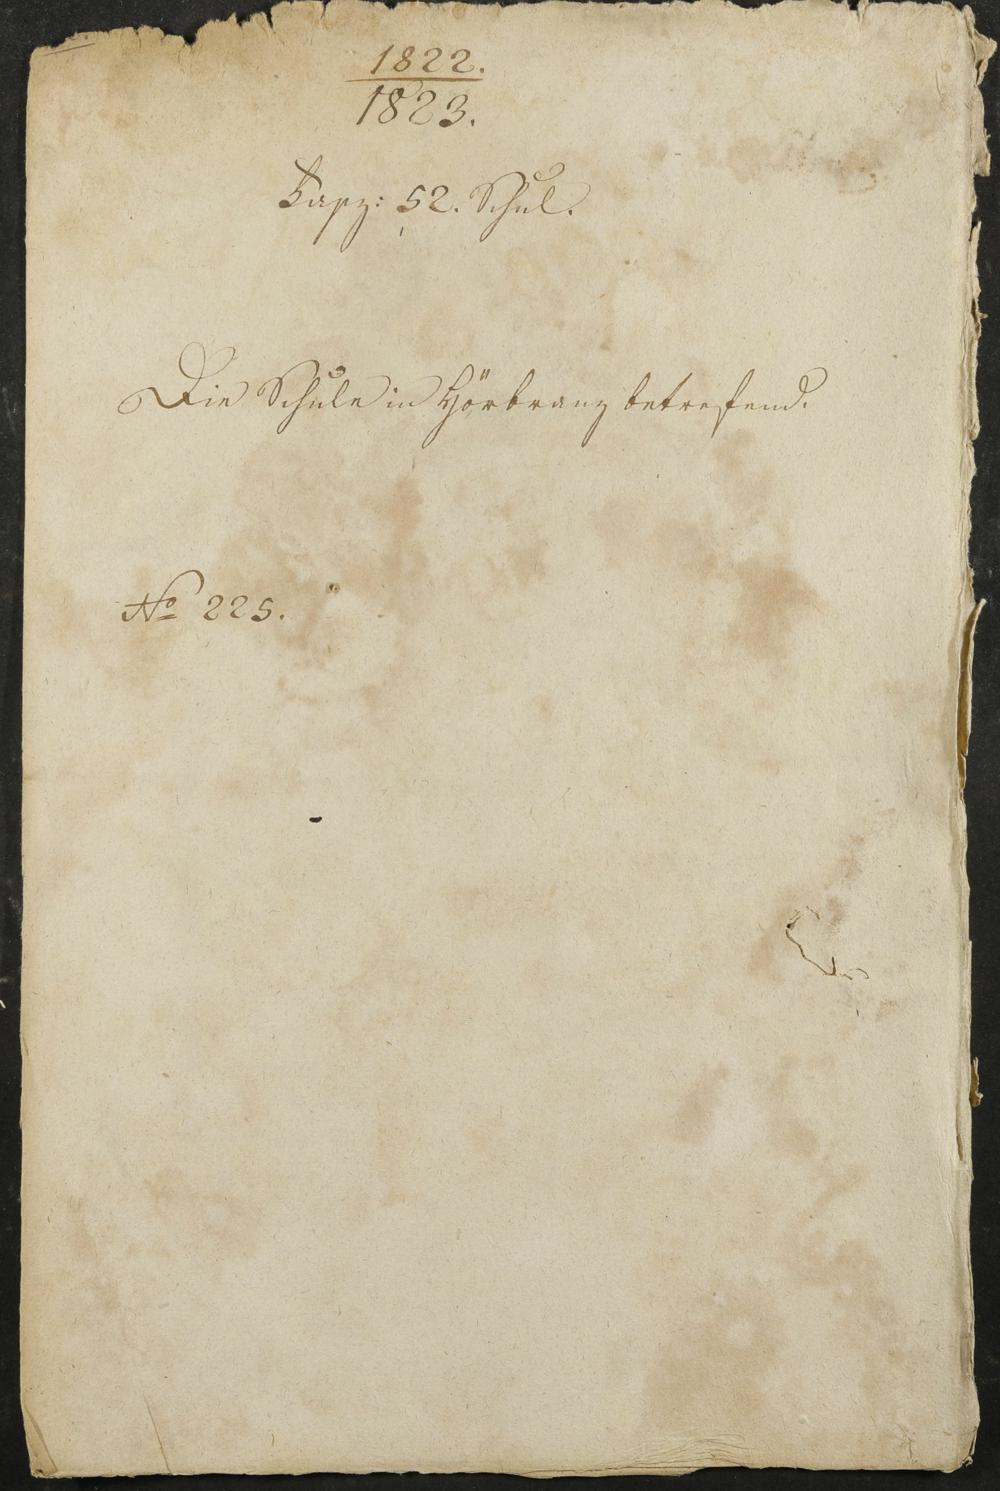 1822.
1823.
Fasz: 52. Schul.
Die Schule in Hörbranz betrefend.
No 225.